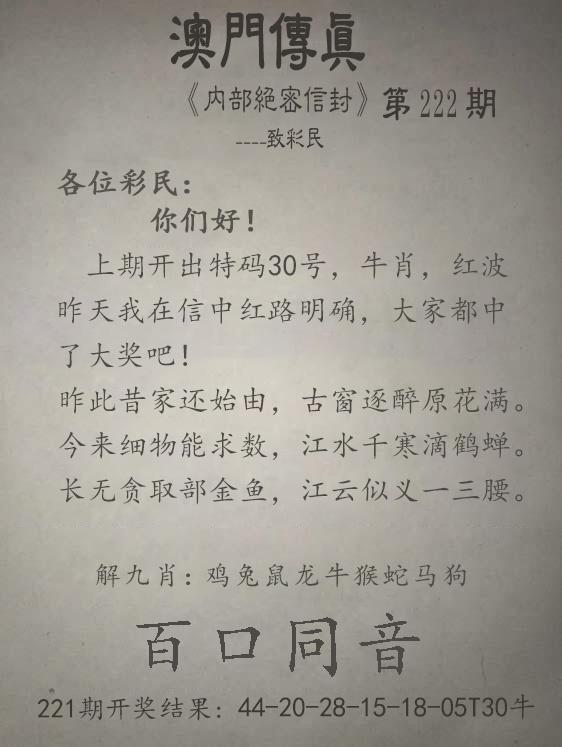 澳門傳真
《内部絕密信封》第222期
----致彩民
各位彩民：
你们好！
上期开出特码30号，牛肖，红波
昨天我在信中红路明确，大家都中
了大奖吧！
昨此昔家还始由，古窗逐醉原花满。
今来细物能求数，江水千寒滴鹤蝉。
长无贪取部金鱼，江云似义一三腰。
解九肖：鸡兔鼠龙牛猴蛇马狗
百口同音
221期开奖结果：44-20-28-15-18-05T30牛